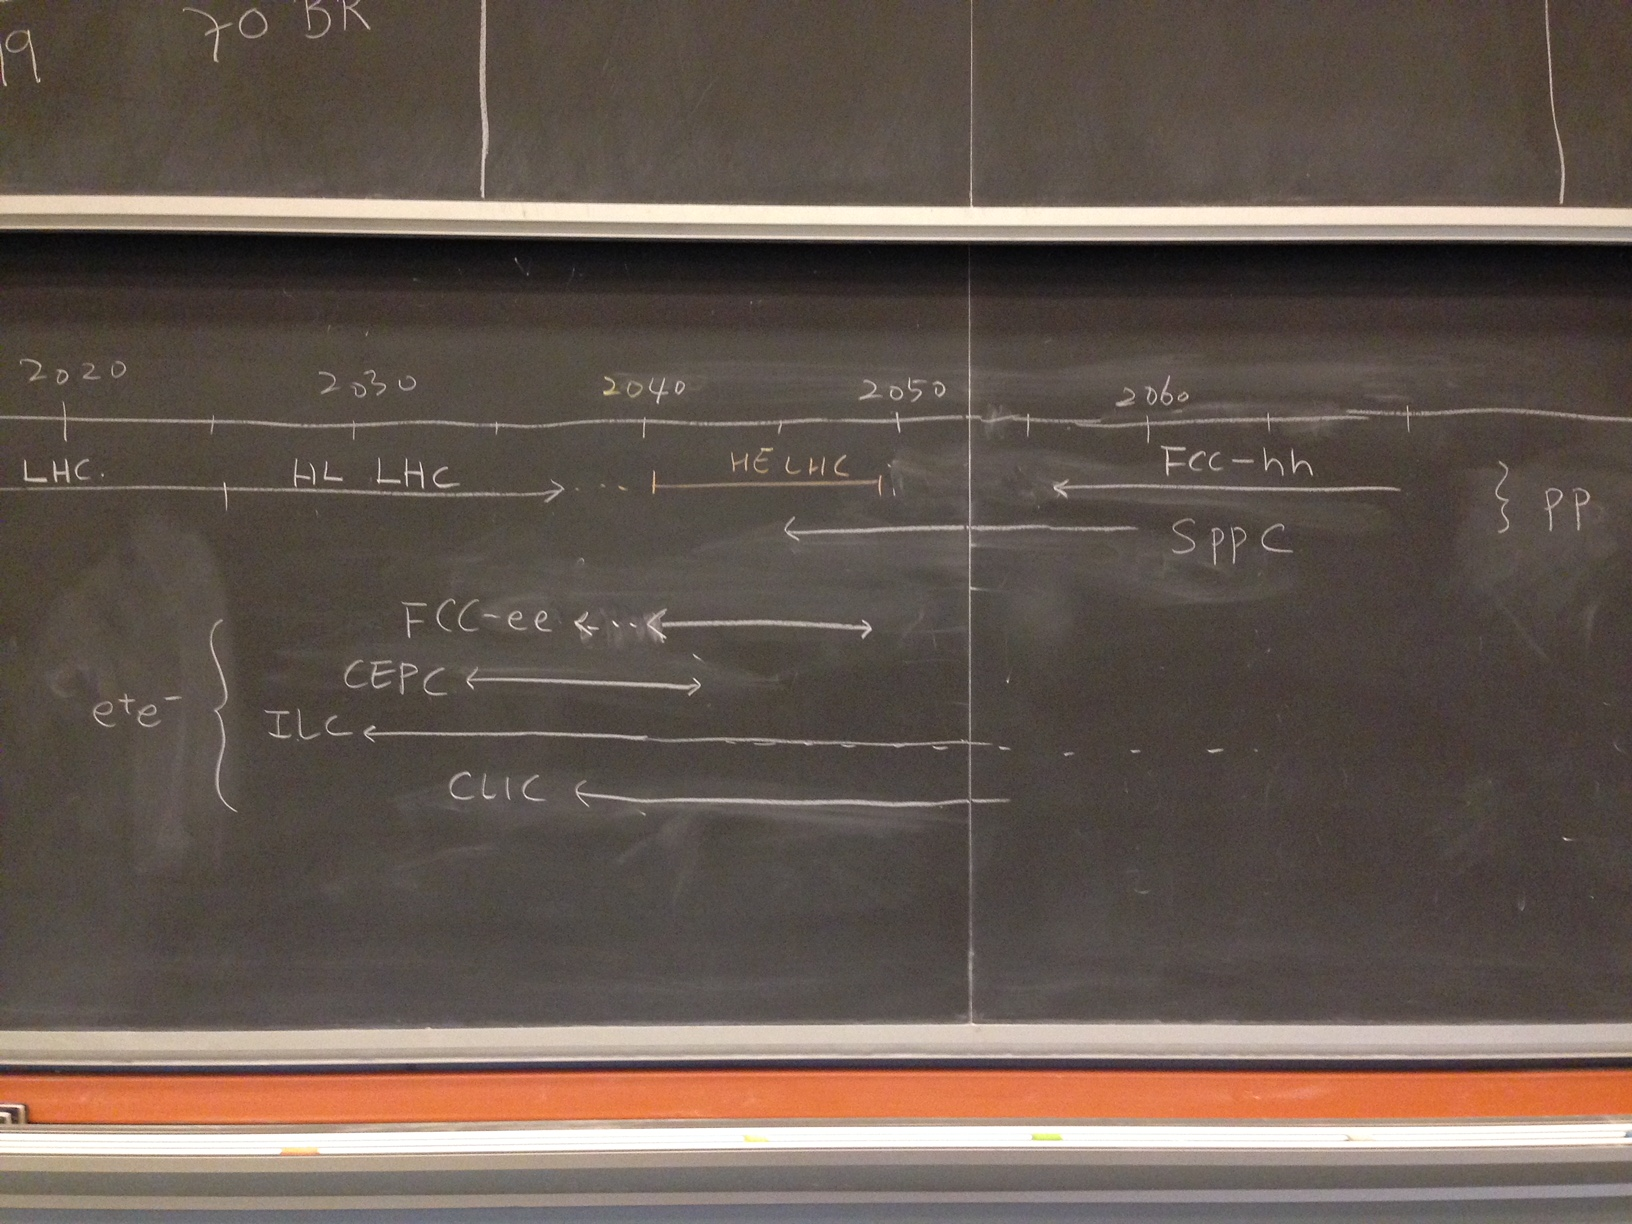 70 BR
2020 2030 2040 2050 2060
LHC. HL LHC HE LHC FCC-hh
SppC } pp
FCC-ee
CEPC
e⁺e⁻ {
ILC
CLIC